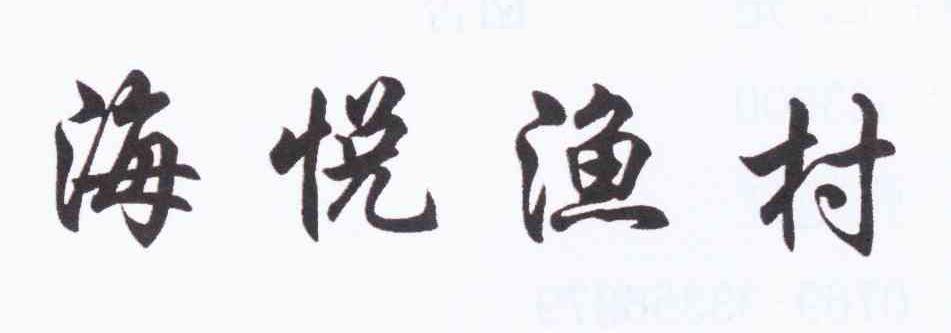 海悦渔村